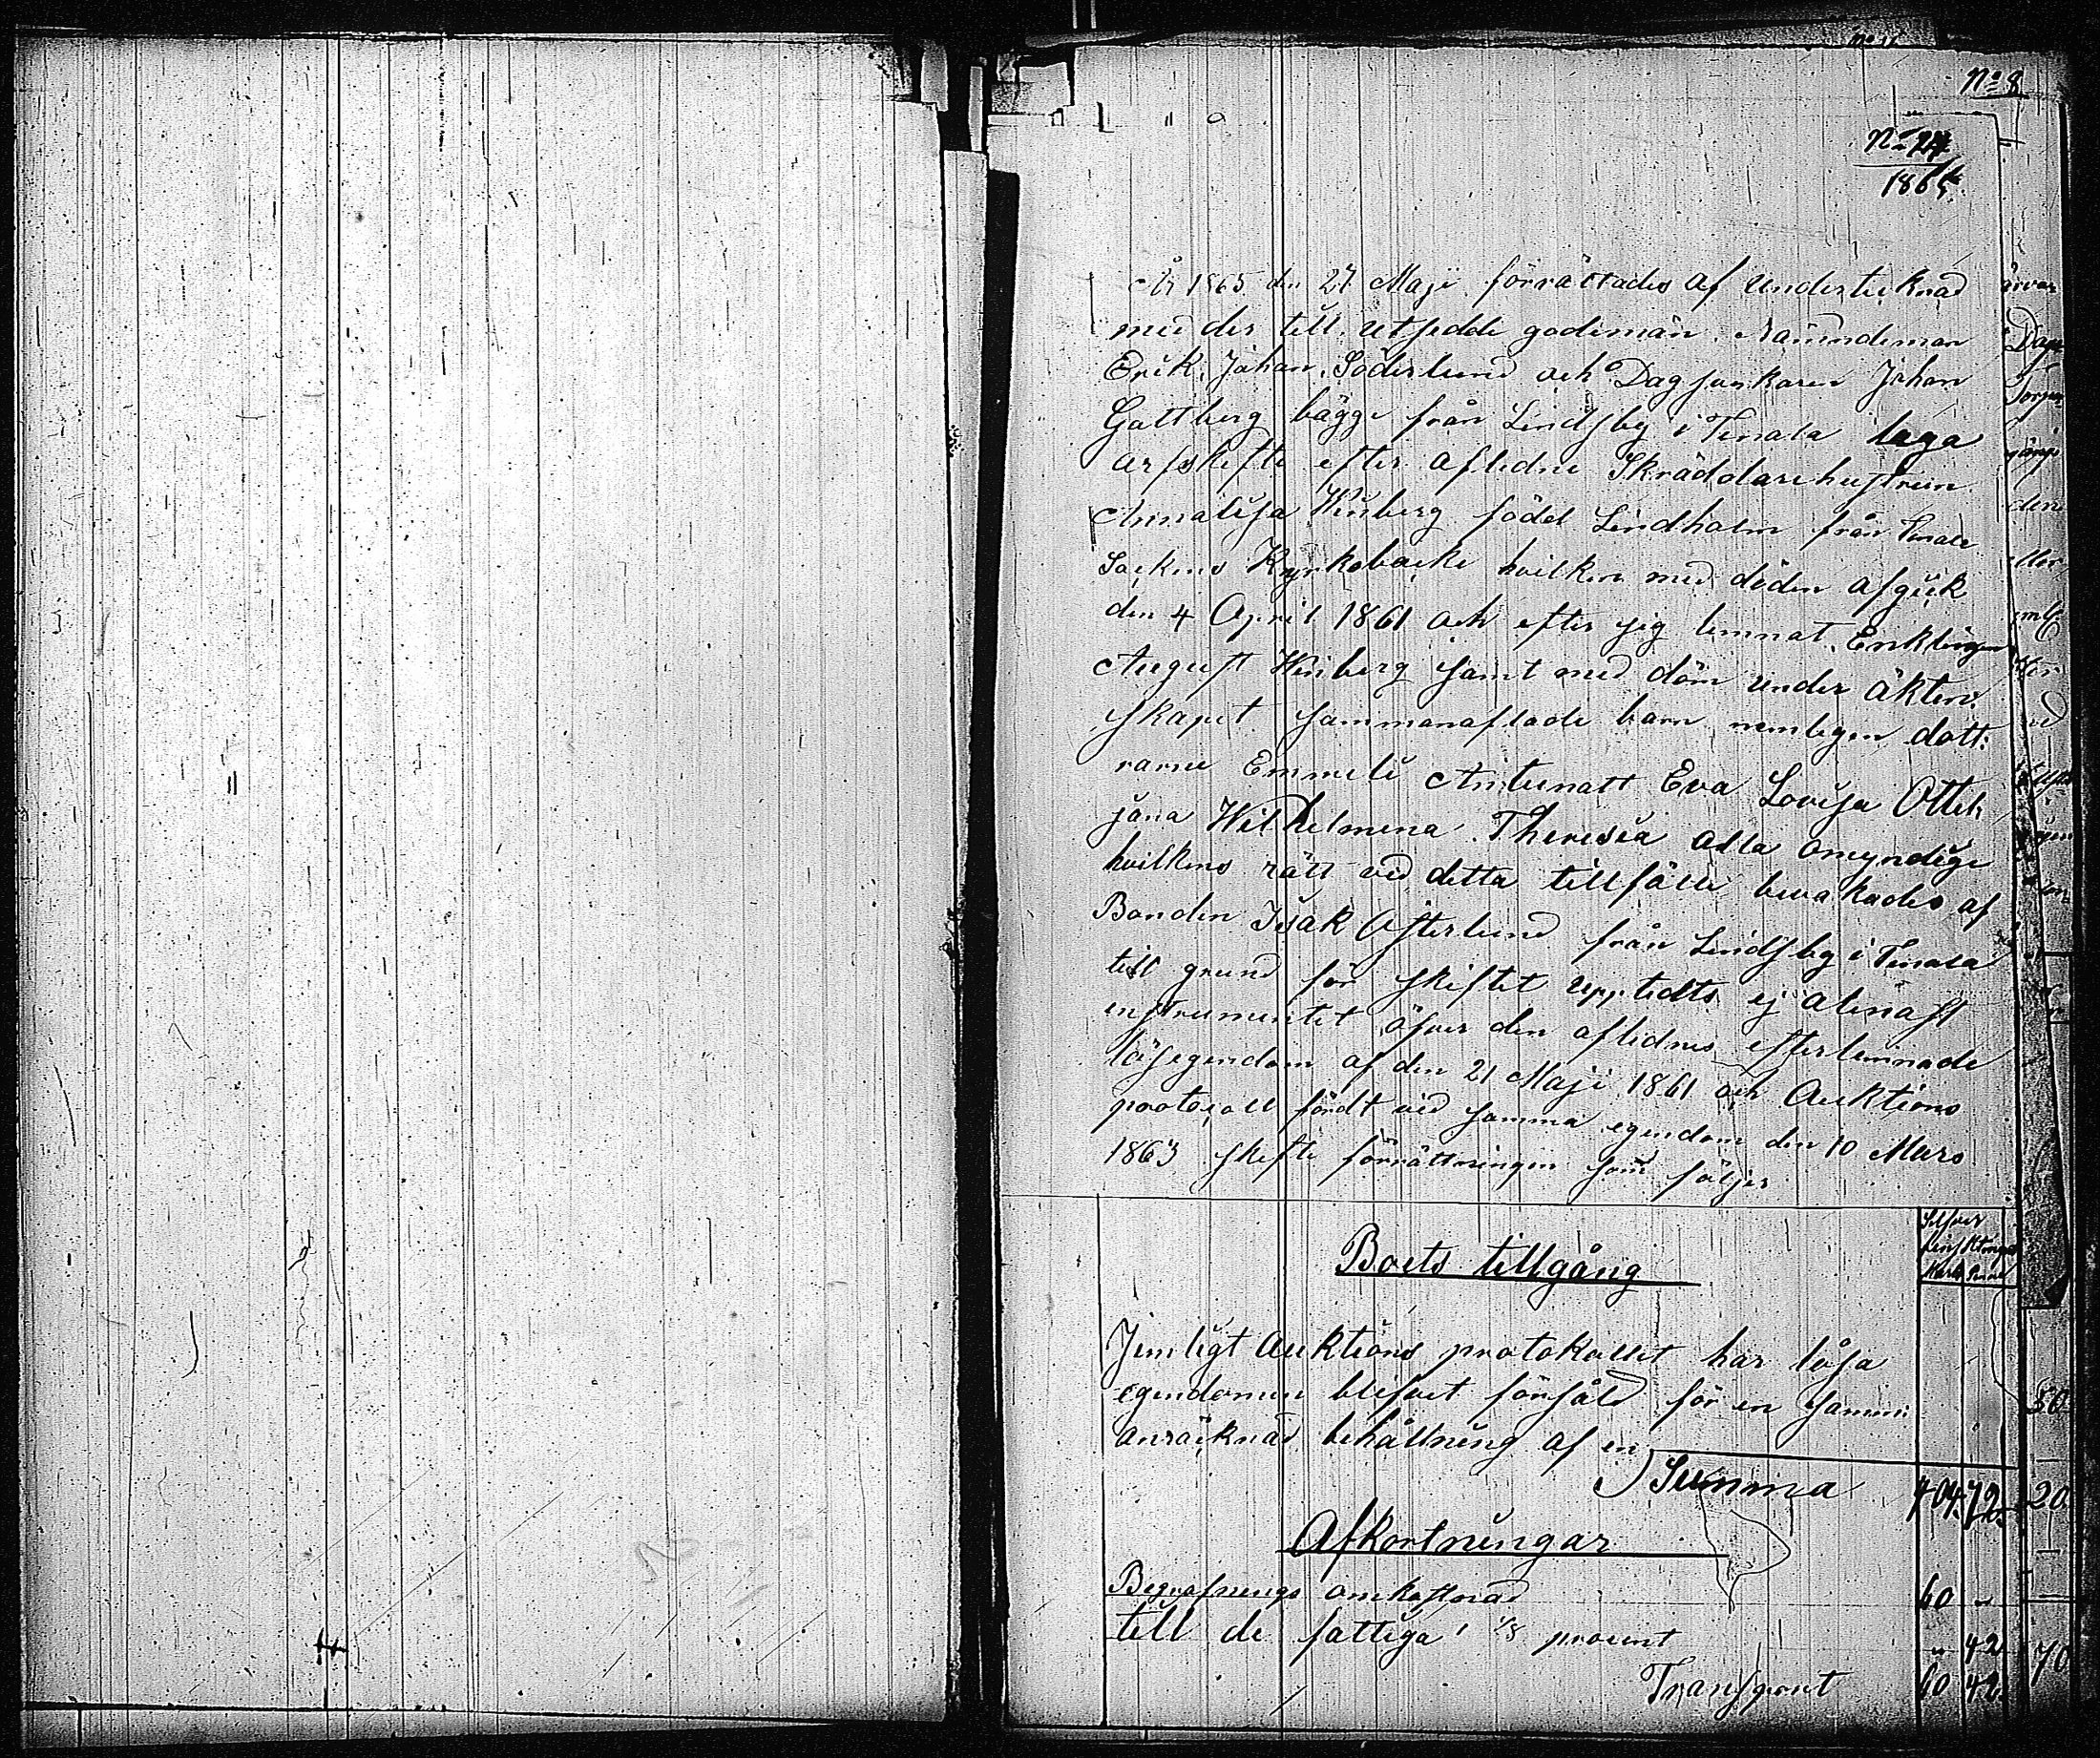 No 8
No 24
1865
År 1865 den 27 Maji förrättades af undertecknad
med der till utsedde godemän Nämndeman
Erik Johan Söderlund och Dagsverkaren Johan
Gottberg bägge från Lindsby i Tenala laga
arfskifte efter aflidne Skräddarehustrun
Annalisa Winberg född Lindholm från Tenala
Sockens Kyrkobacke hvilken med döden afgick
den 4 April 1861 och efter sig lemnat Enklingen
August Winberg samt med döm under äkten:
skapet sammanaflade barn nemligen dött:
rarne Emmeli Antunatt Eva Lovisa Otteli
jana Wilhelmina Theresia alla omyndige
hvilkens rätt vid detta tillfälle bevakades af
Bonden Isak Österlund från Lindsby i Tenala
till grund för skiftet upptedts ej alenast
instrumentet öfver den aflidnes efterlemnade
lösegendom af den 21 Maji 1861 och Auktions
protocoll fördt vid samma egendom den 10 Mars
1863 skifte förrättningen som följer
Silfver
Boets tillgång
Jemligt Auktions protokollet har lösa
egendomen blifvet försåld för en sammi
anräcknad behållning af en
Summa 404 72
Afkortningar
Begrafnings omkostnad 60 "
till de fattiga 1/8 procent " 42
Transport 60 42